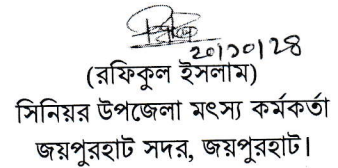 ২০|১০|২৪
(রফিকুল ইসলাম)
সিনিয়র উপজেলা মৎস্য কর্মকর্তা
জয়পুরহাট সদর, জয়পুরহাট।